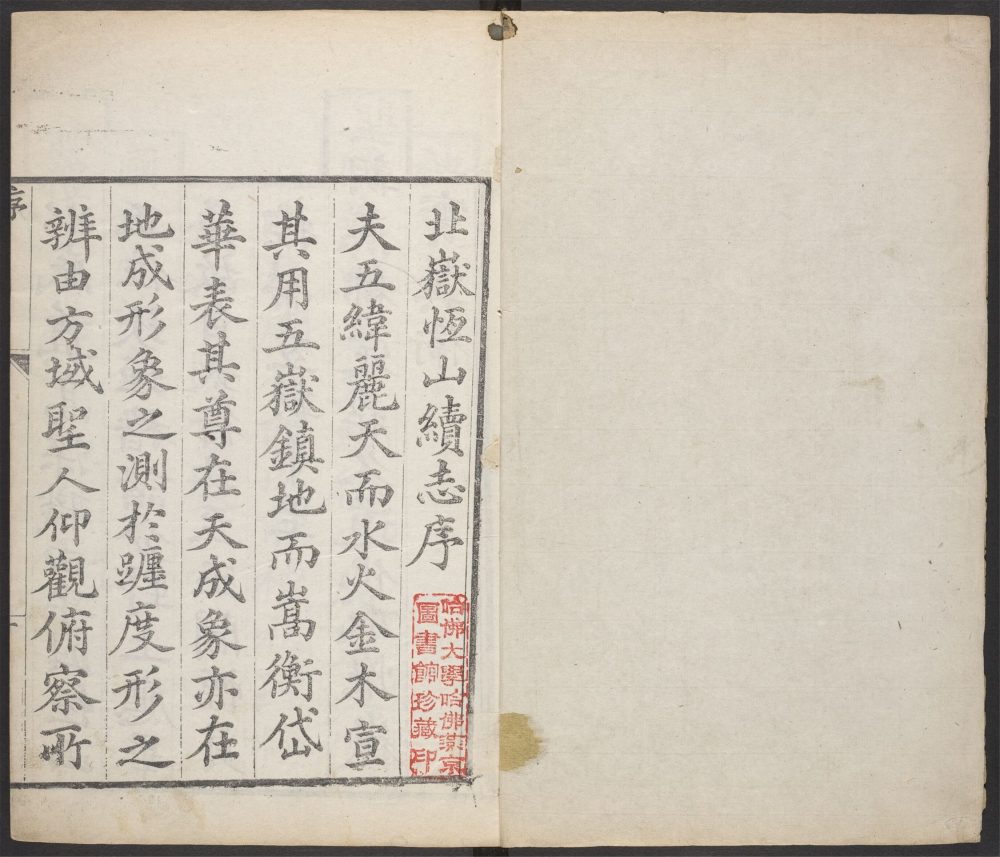 北嶽恆山續志序
夫五緯麗天而水火金木宣
其用五嶽鎮地而嵩衡岱
華表其尊在天成象亦在
地成形象之測於躔度形之
辨由方域聖人仰觀俯察所
序
一
哈佛大學哈佛燕京
圖書館珍藏印